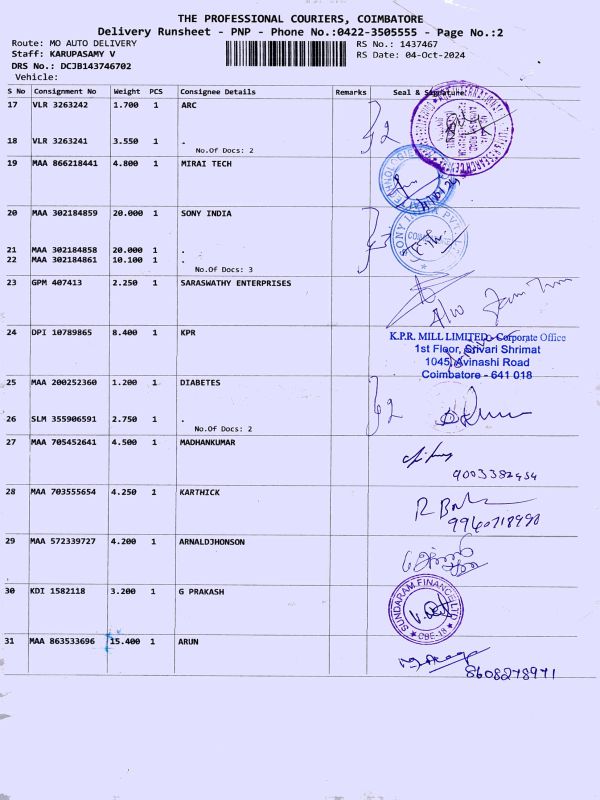 THE PROFESSIONAL COURIERS, COIMBATORE
Delivery Runsheet - PNP - Phone No.:0422-3505555 - Page No.:2
Route: MO AUTO DELIVERY
RS No.: 1437467
Staff: KARUPASAMY V
RS Date: 04-Oct-2024
DRS No.: DCJB143746702
Vehicle:
S No Consignment No Weight PCS Consignee Details Remarks Seal & Signature
17 VLR 3263242 1.700 1 ARC
18 VLR 3263241 3.550 1 .
No.Of Docs: 2
19 MAA 866218441 4.800 1 MIRAI TECH
20 MAA 302184859 20.000 1 SONY INDIA
21 MAA 302184858 20.000 1 .
22 MAA 302184861 10.100 1 .
No.Of Docs: 3
23 GPM 407413 2.250 1 SARASWATHY ENTERPRISES
24 DPI 10789865 8.400 1 KPR
K.P.R. MILL LIMITED, Corporate Office
1st Floor, Srivari Shrimat
1045, Avinashi Road
Coimbatore - 641 018
25 MAA 200252360 1.200 1 DIABETES
26 SLM 355906591 2.750 1 .
No.Of Docs: 2
27 MAA 705452641 4.500 1 MADHANKUMAR
28 MAA 703555654 4.250 1 KARTHICK
29 MAA 572339727 4.200 1 ARNALDJHONSON
30 KDI 1582118 3.200 1 G PRAKASH
SUNDARAM FINANCE LTD
CBE-18
31 MAA 863533696 15.400 1 ARUN
8608278971